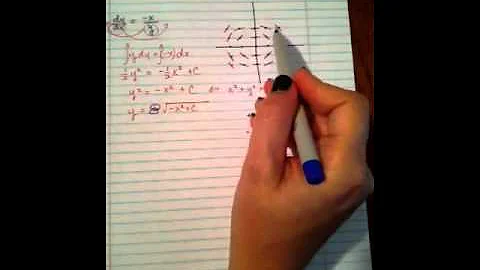 dy/dx = -x/y
∫y dy = ∫(-x)dx
½y² = -½x² + C
y² = -x² + C or x² + y²
y = √-x²+C